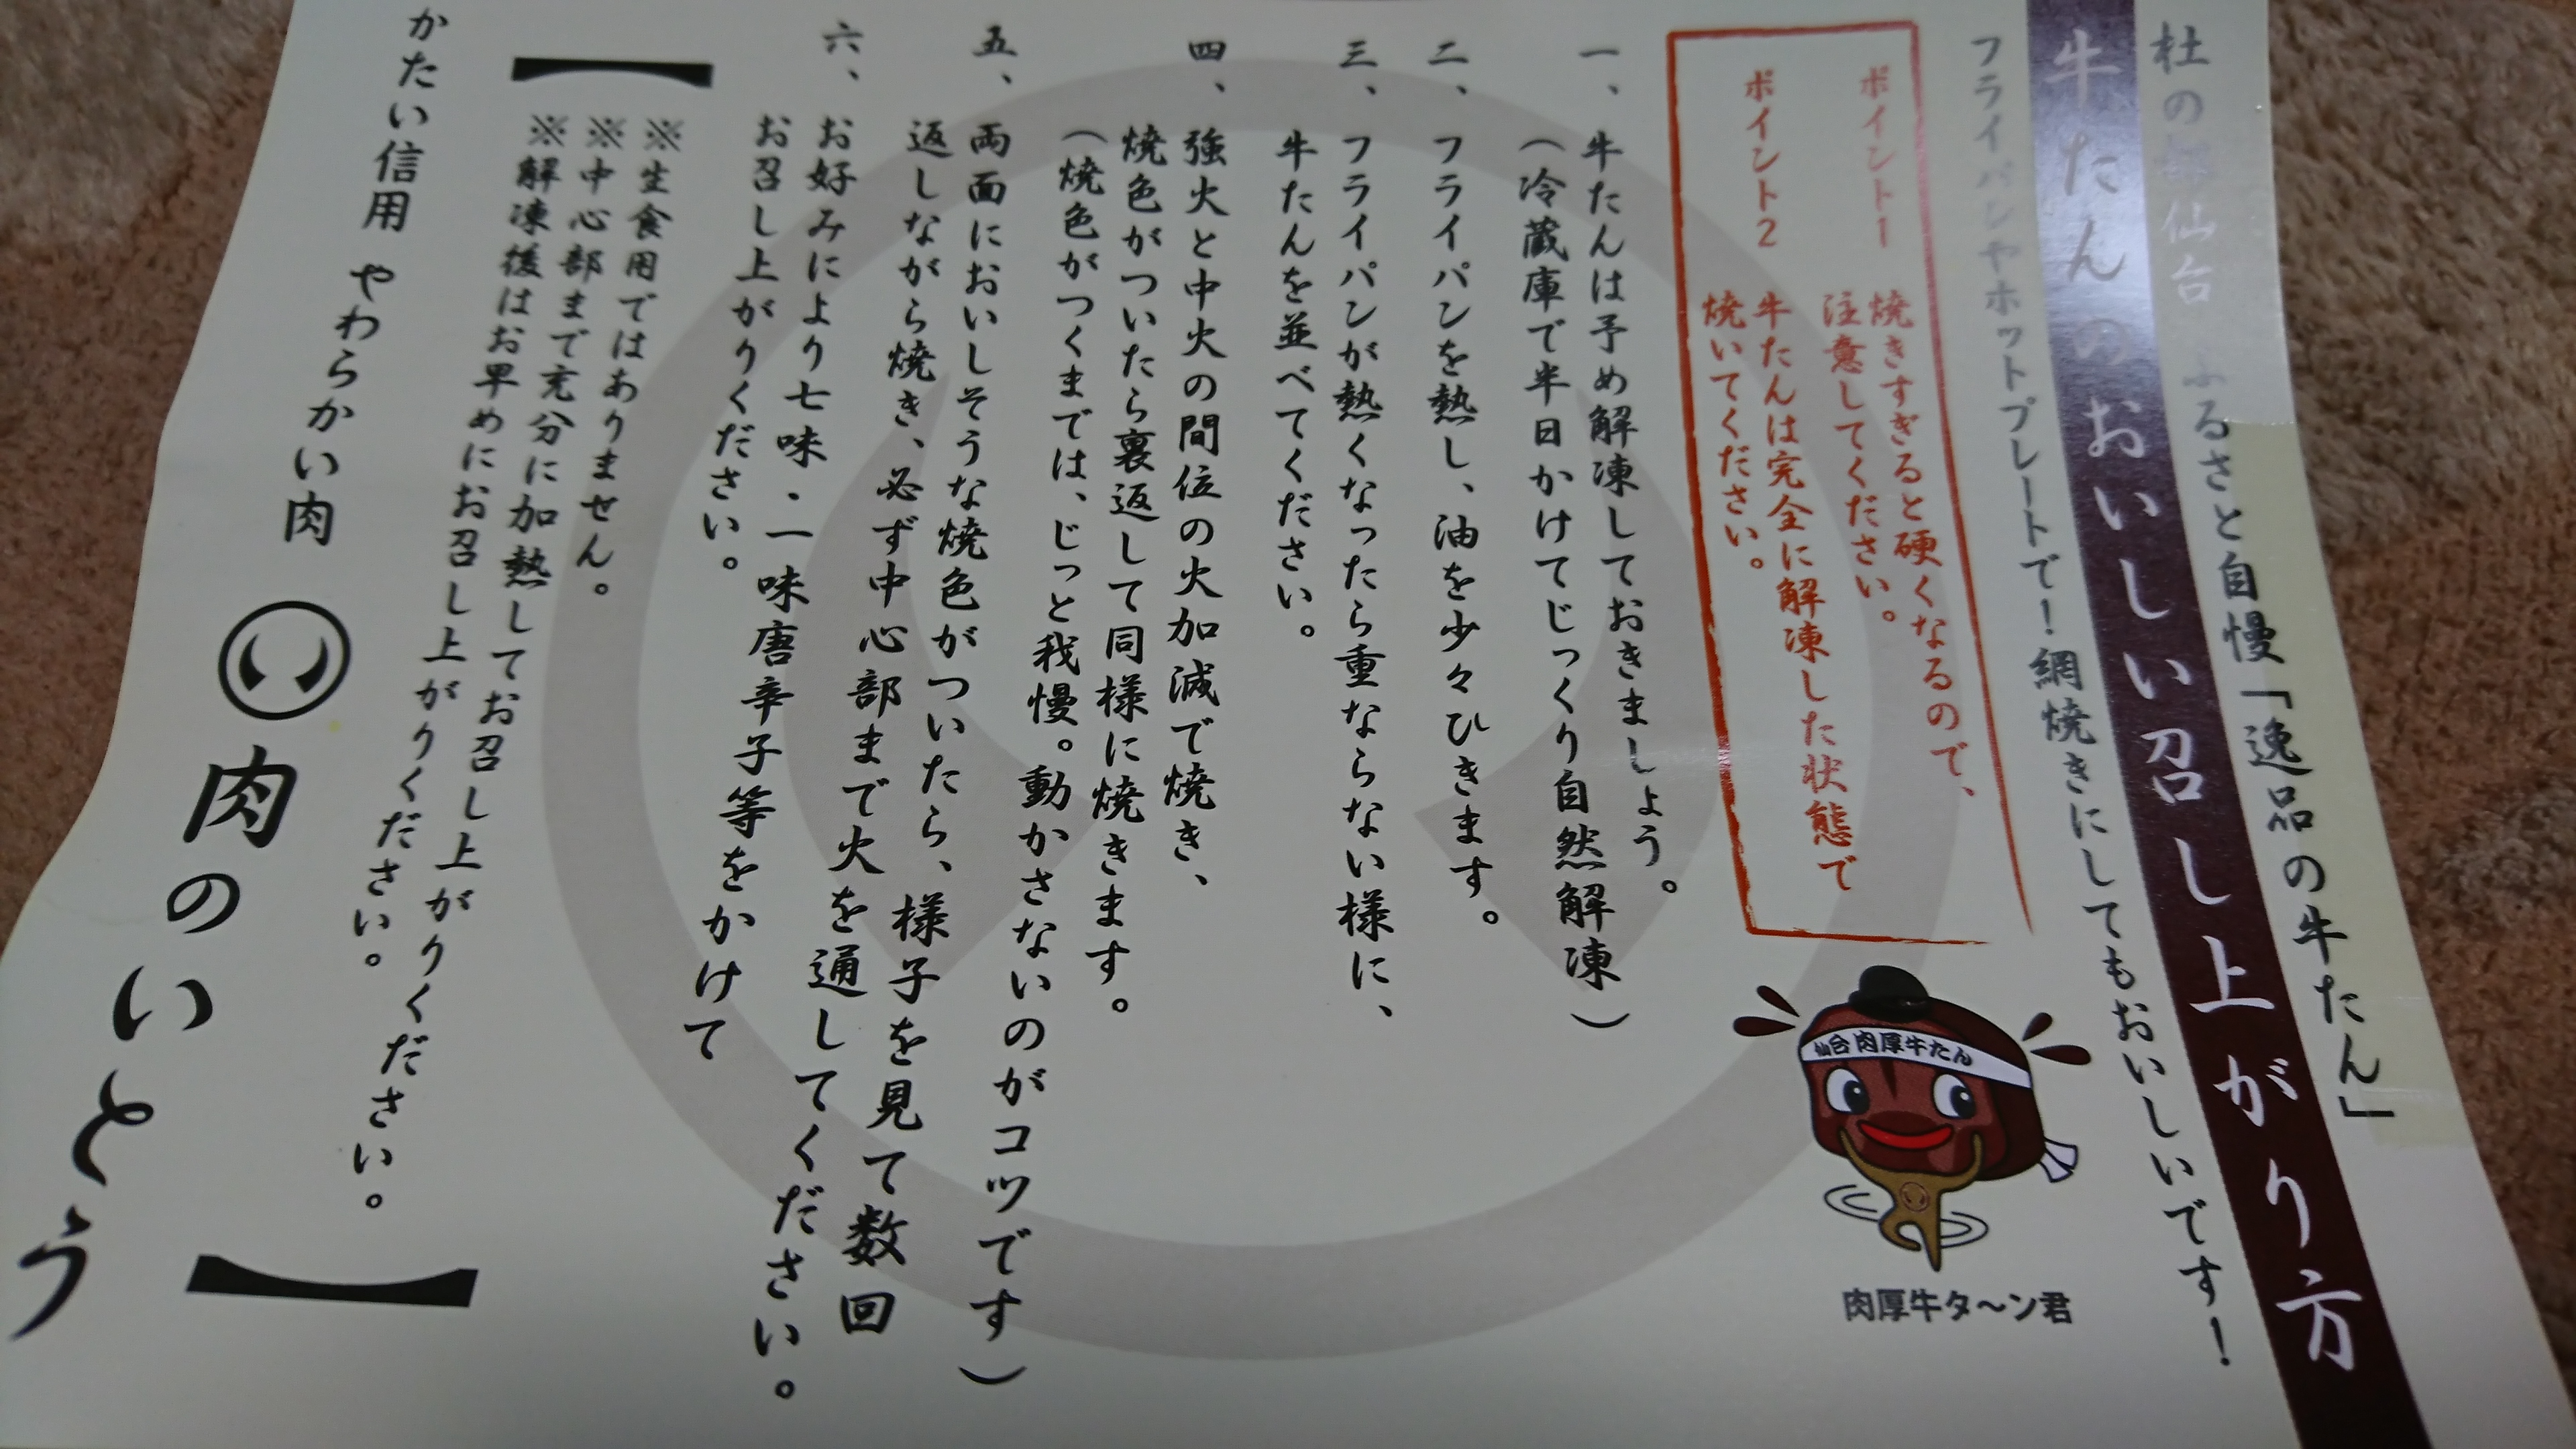 杜の都仙台 ふるさと自慢「逸品の牛たん」
牛たんのおいしい召し上がり方
フライパンやホットプレートで！網焼きにしてもおいしいです！
ポイント1 焼きすぎると硬くなるので、
注意してください。
ポイント2 牛たんは完全に解凍した状態で
焼いてください。
仙台 肉厚牛たん
肉厚牛タ〜ン君
一、牛たんは予め解凍しておきましょう。
（冷蔵庫で半日かけてじっくり自然解凍）
二、フライパンを熱し、油を少々ひきます。
三、フライパンが熱くなったら重ならない様に、
牛たんを並べてください。
四、強火と中火の間位の火加減で焼き、
焼色がついたら裏返して同様に焼きます。
（焼色がつくまでは、じっと我慢。動かさないのがコツです）
五、両面においしそうな焼色がついたら、様子を見て数回
返しながら焼き、必ず中心部まで火を通してください。
六、お好みにより七味・一味唐辛子等をかけて
お召し上がりください。
※生食用ではありません。
※中心部まで充分に加熱してお召し上がりください。
※解凍後はお早めにお召し上がりください。
かたい信用 やわらかい肉 い 肉のいとう